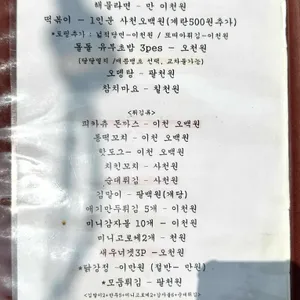 해물라면 - 만 이천원
떡볶이 - 1인분 사천오백원(계란500원추가)
*토핑추가 : 넓적당면-이천원 /
돌돌 유부초밥 3pes - 오천원
오뎅탕 - 팔천원
참치마요 - 칠천원
<튀김류>
피카츄 돈까스 - 이천 오백원
통떡꼬치 - 이천 오백원
핫도그 - 이천 오백원
치킨꼬치 - 사천원
순대튀김 - 사천원
김말이 - 팔백원(개당)
애기만두튀김 5개 - 이천원
미니감자볼 10개 - 이천원
미니고로케2개 - 천원
새우너겟3P -오천원
*닭강정 -이만원 (절반- 만원)
*모듬튀김 - 팔천원